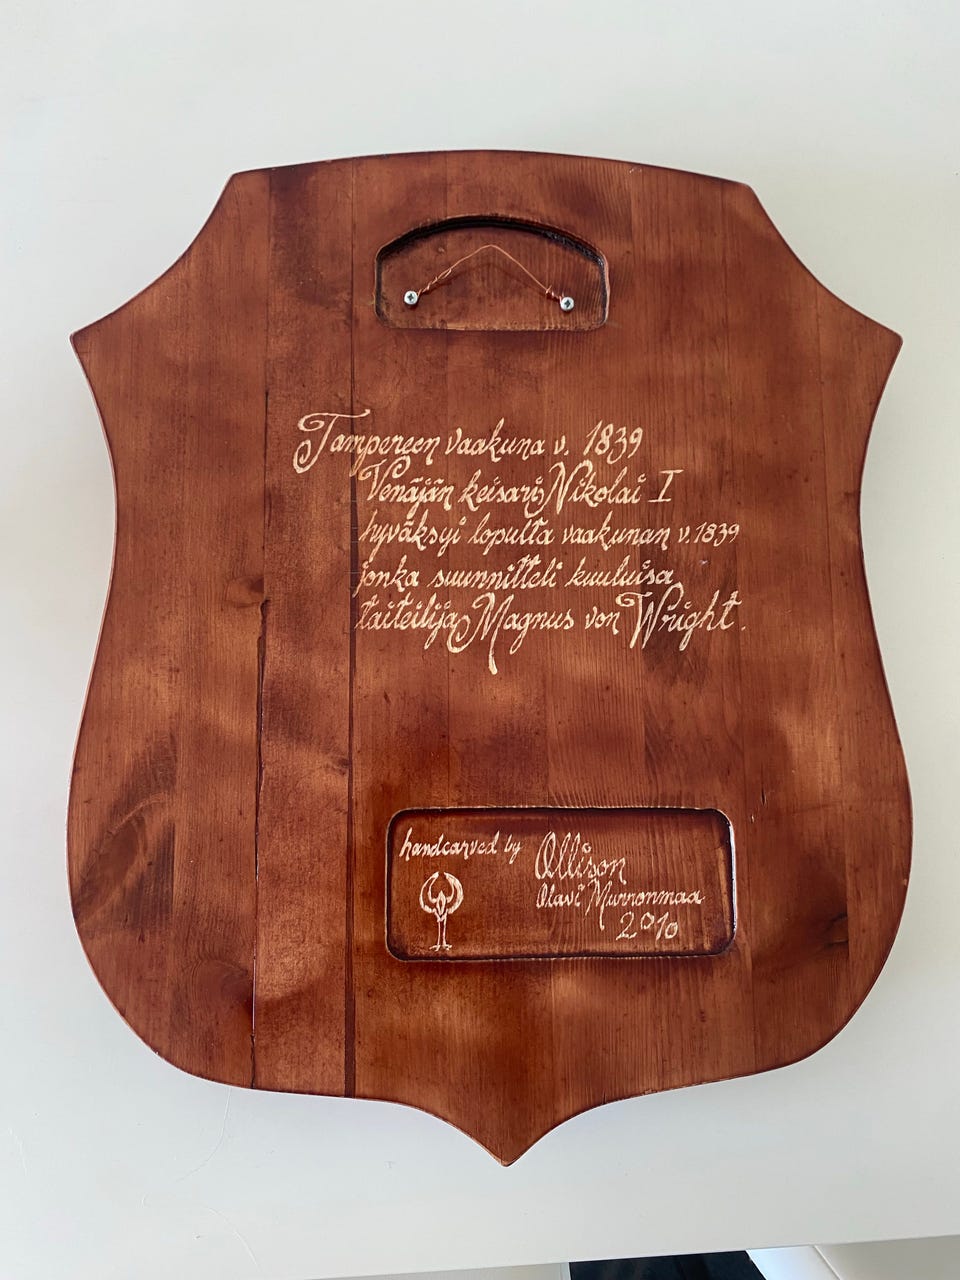 Tampereen vaakuna v. 1839
Venäjän keisari Nikolai I
hyväksyi lopulta vaakunan v. 1839
jonka suunnitteli kuuluisa
taiteilija Magnus von Wright.
handcarved by Ollison
Olavi Murronmaa
2010